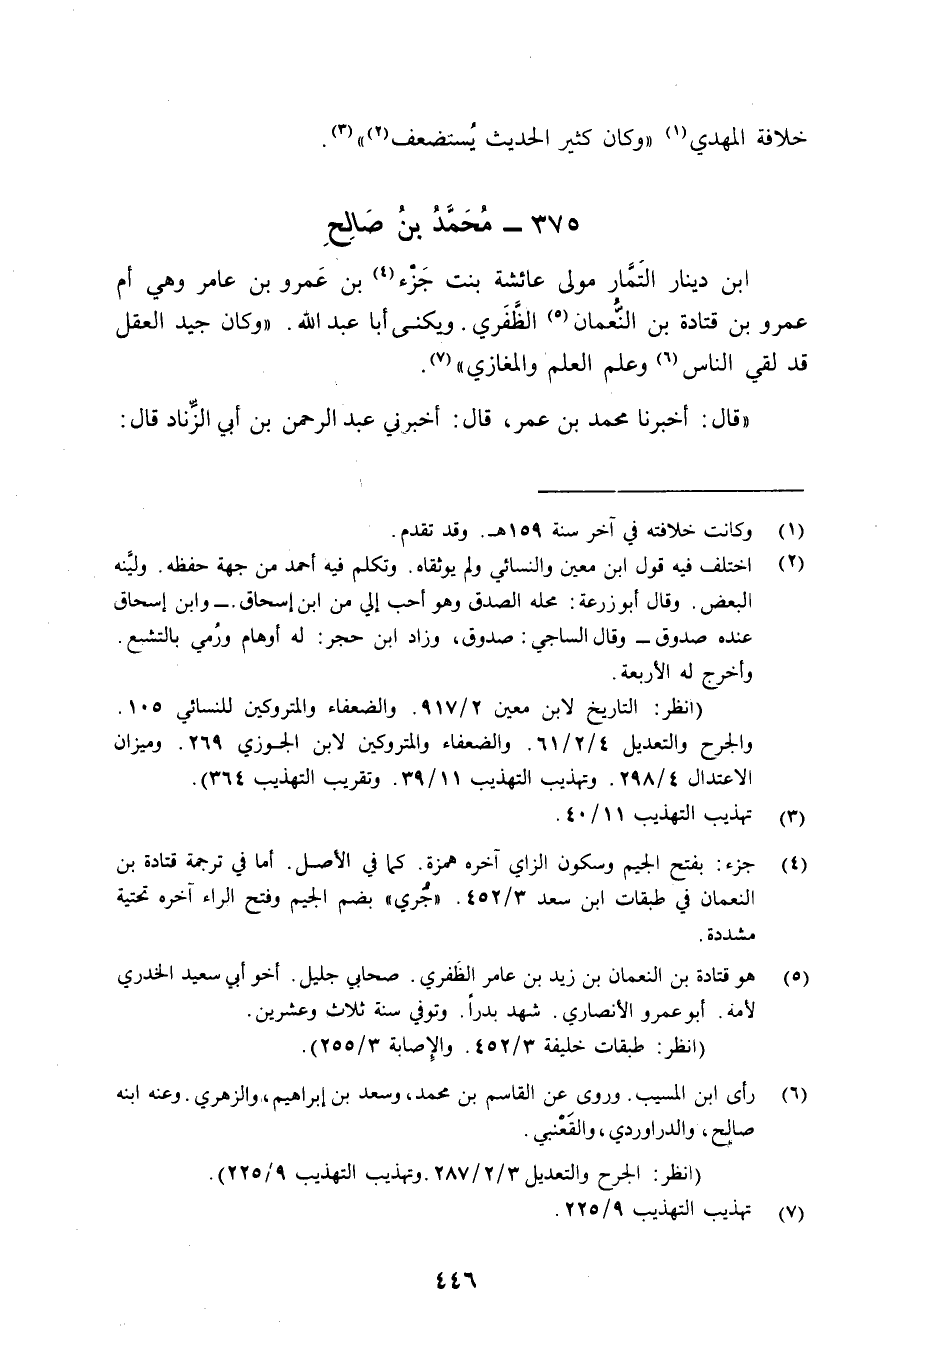 خلافة المهدي(١) «وكان كثير الحديث يُستضعف(٢)»(٣).
٣٧٥ ـ مُحَمَّدُ بنُ صَالِحِ
ابن دينار التَمَّار مولى عائشة بنت جَزْء(٤) بن عَمرو بن عامر وهي أم
عمرو بن قتادة بن النُّعمان(٥) الظَّفَري. ويكنى أبا عبد الله. «وكان جيد العقل
قد لقي الناس(٦) وعلم العلم والمغازي»(٧).
«قال: أخبرنا محمد بن عمر، قال: أخبرني عبد الرحمن بن أبي الزِّناد قال:
(١) وكانت خلافته في آخر سنة ١٥٩هـ. وقد تقدم.
(٢) اختلف فيه قول ابن معين والنسائي ولم يوثقاه. وتكلم فيه أحمد من جهة حفظه. وليَّنه
البعض. وقال أبو زرعة: محله الصدق وهو أحب إلي من ابن إسحاق. ـ وابن إسحاق
عنده صدوق ـ وقال الساجي: صدوق، وزاد ابن حجر: له أوهام ورُمي بالتشيع.
وأخرج له الأربعة.
(انظر: التاريخ لابن معين ٩١٧/٢. والضعفاء والمتروكين للنسائي ١٠٥.
والجرح والتعديل ٦١/٢/٤. والضعفاء والمتروكين لابن الجوزي ٢٦٩. وميزان
الاعتدال ٢٩٨/٤. وتهذيب التهذيب ٣٩/١١. وتقريب التهذيب ٣٦٤).
(٣) تهذيب التهذيب ٤٠/١١.
(٤) جزء: بفتح الجيم وسكون الزاي آخره همزة. كما في الأصل. أما في ترجمة قتادة بن
النعمان في طبقات ابن سعد ٤٥٢/٣. «جُري» بضم الجيم وفتح الراء آخره تحتية
مشددة.
(٥) هو قتادة بن النعمان بن زيد بن عامر الظَفري. صحابي جليل. أخو أبي سعيد الخدري
لأمه. أبو عمرو الأنصاري. شهد بدراً. وتوفي سنة ثلاث وعشرين.
(انظر: طبقات خليفة ٤٥٢/٣. والإصابة ٢٥٥/٣).
(٦) رأى ابن المسيب. وروى عن القاسم بن محمد، وسعد بن إبراهيم، والزهري. وعنه ابنه
صالح، والدراوردي، والقَعْنبي.
(انظر: الجرح والتعديل ٢٨٧/٢/٣. وتهذيب التهذيب ٢٢٥/٩).
(٧) تهذيب التهذيب ٢٢٥/٩.
٤٤٦